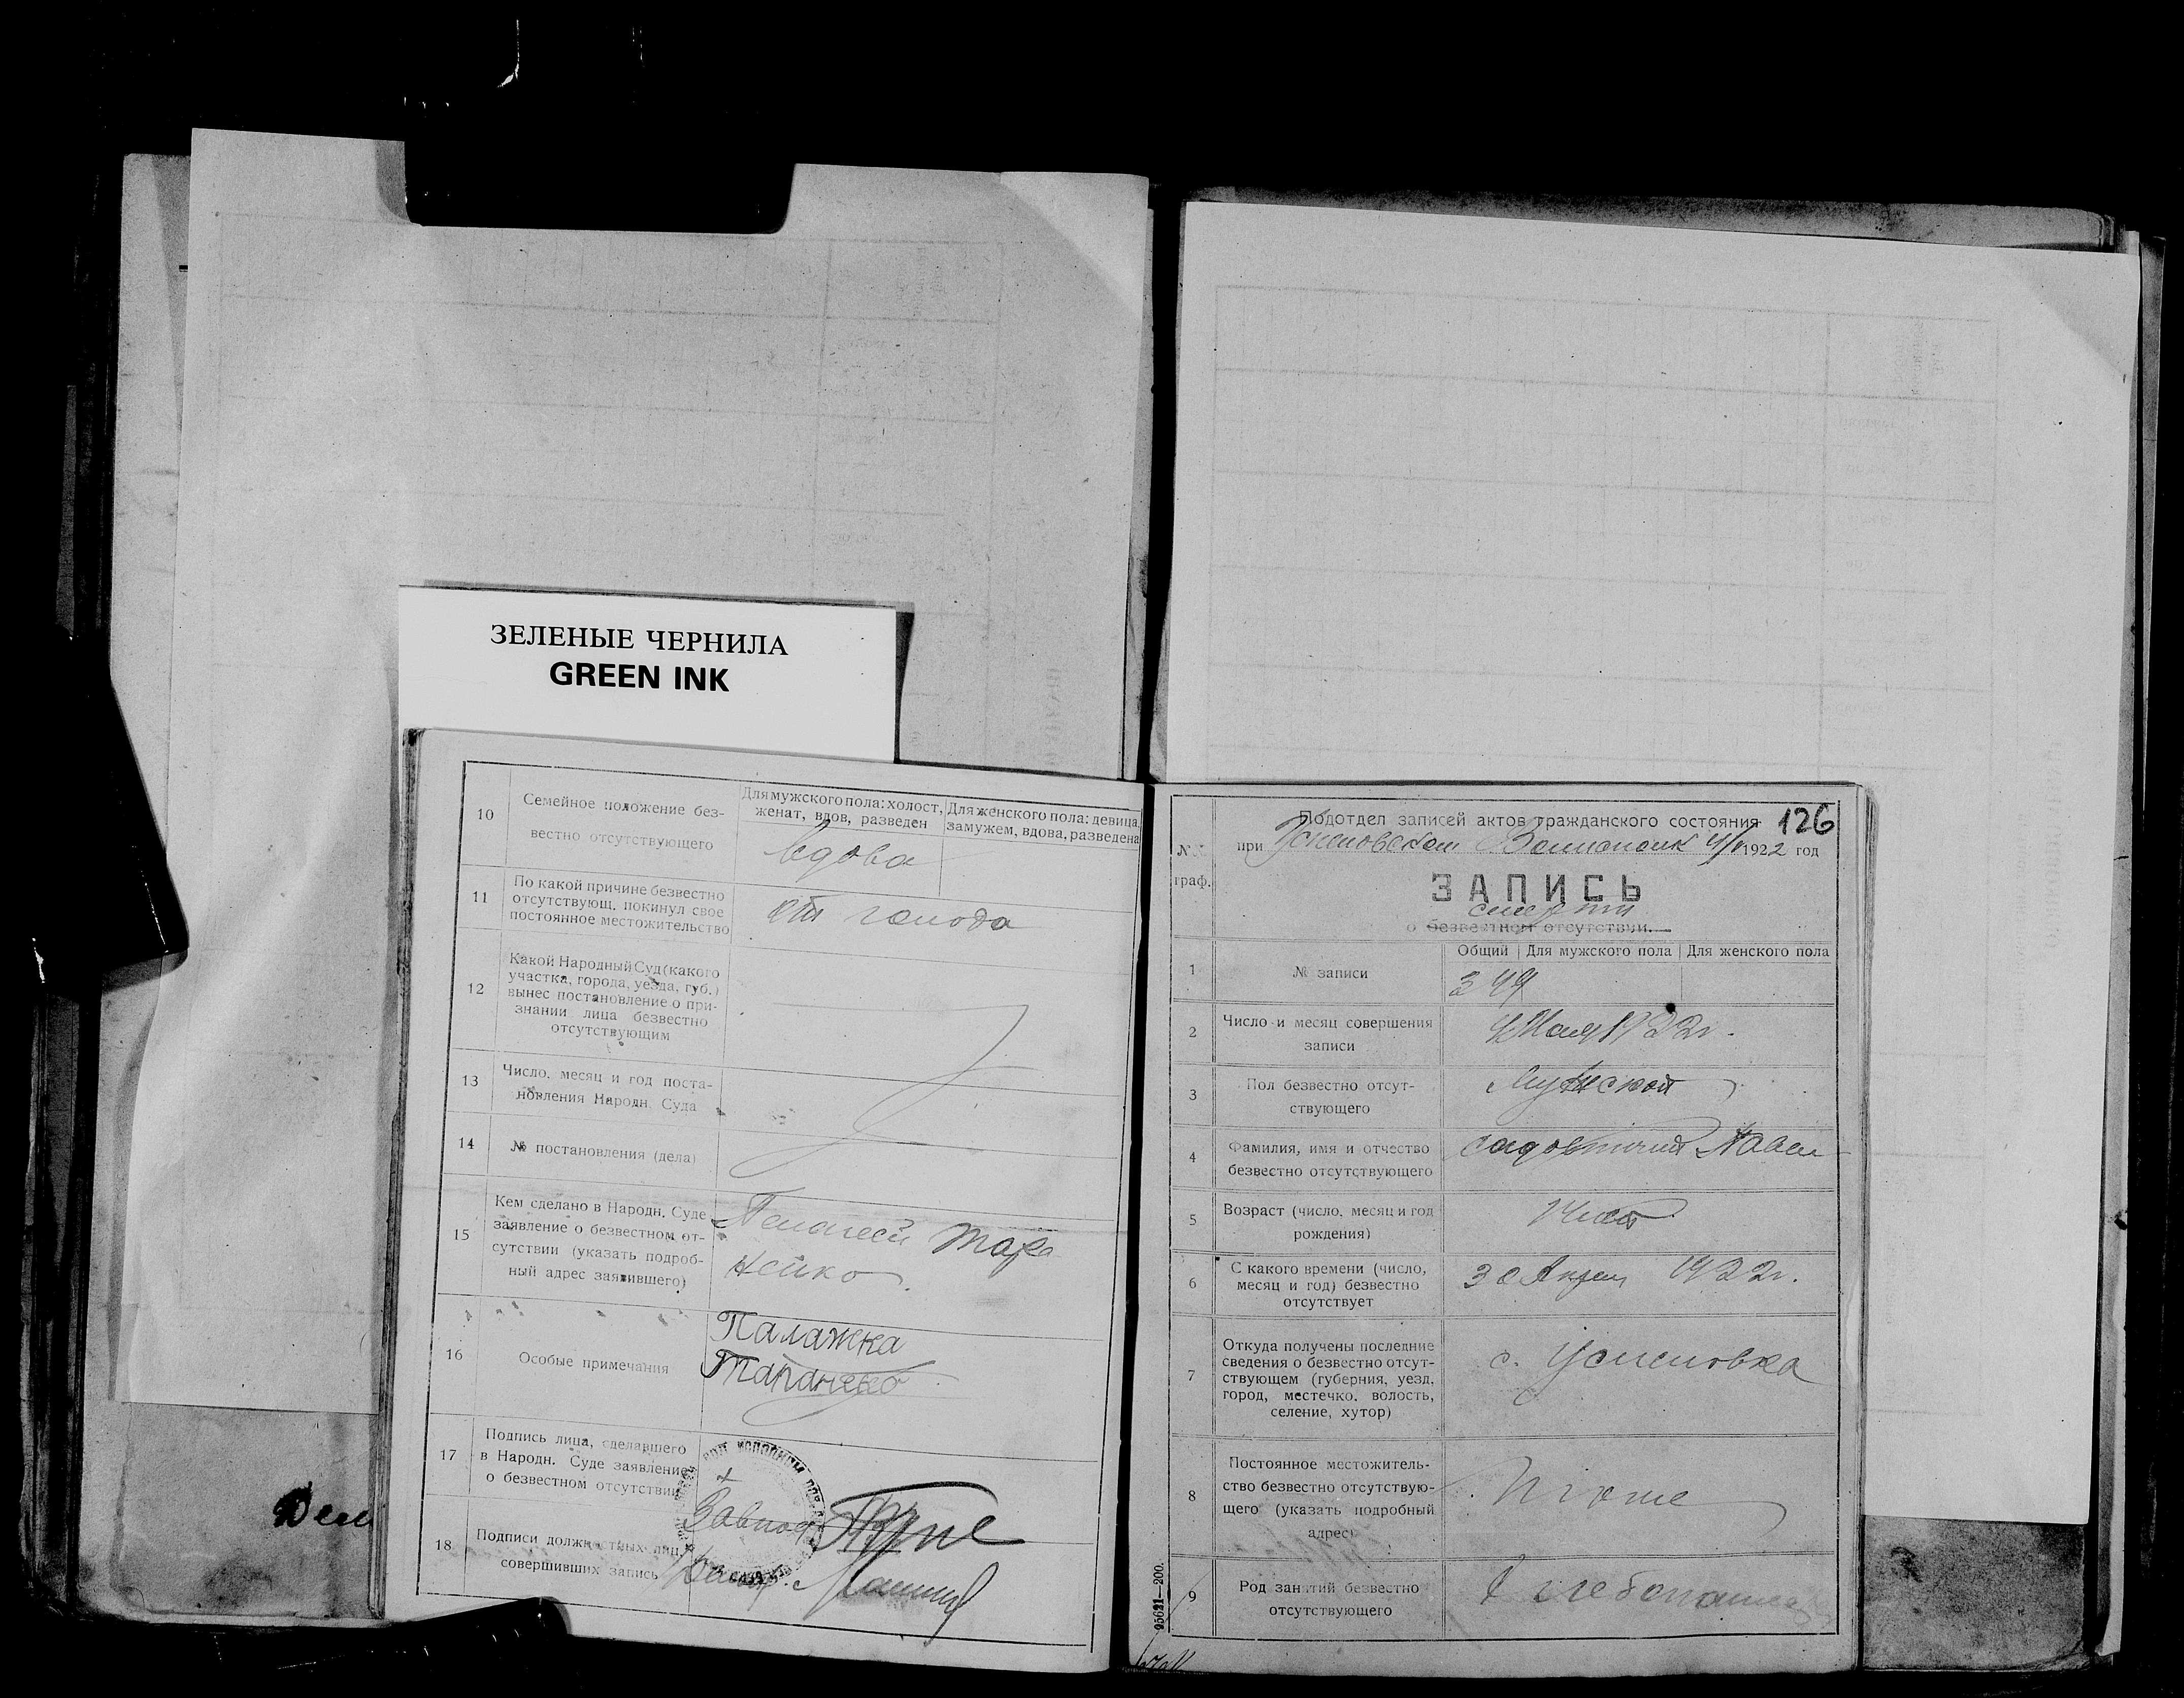 ЗЕЛЕНЫЕ ЧЕРНИЛА
GREEN INK
10
Семейное положение без-
вестно отсутствующего
Для мужского пола: холост,
женат, вдов, разведен
Для женского пола: девица,
замужем, вдова, разведена
вдова
11
По какой причине безвестно
отсутствующ. покинул свое
постоянное местожительство
от голода
12
Какой Народный Суд (какого
участка, города, уезда, губ.)
вынес постановление о при-
знании лица безвестно
отсутствующим
13
Число, месяц и год поста-
новления Народн. Суда
14
№ постановления (дела)
15
Кем сделано в Народн. Суде
заявление о безвестном от-
сутствии (указать подроб-
ный адрес заявившего)
16
Особые примечания
Палажка
17
Подпись лица, сделавшего
в Народн. Суде заявление
о безвестном отсутствии
18
Подписи должностных лиц,
совершивших запись
Завпод
126
Подотдел записей актов гражданского состояния
№№
граф.
при Успеновском Волисполк 4/V 1922 год
ЗАПИСЬ
смерти
о безвестном отсутствии.
1
№ записи
Общий
Для мужского пола
Для женского пола
349
2
Число и месяц совершения
записи
4 Мая 1922 г.
3
Пол безвестно отсут-
ствующего
Мужской
4
Фамилия, имя и отчество
безвестно отсутствующего
5
Возраст (число, месяц и год
рождения)
6
С какого времени (число,
месяц и год) безвестно
отсутствует
30 Апреля 1922 г.
7
Откуда получены последние
сведения о безвестно отсут-
ствующем (губерния, уезд,
город, местечко, волость,
селение, хутор)
с. Успеновка
8
Постоянное местожитель-
ство безвестно отсутствую-
щего (указать подробный
адрес)
9
Род занятий безвестно
отсутствующего
Хлебопашец
25621—200.